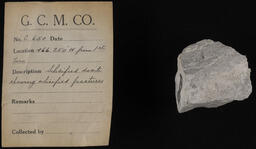 G. C. M. CO.
No. C. 650 Date
Location 466. 250' W from 1st
Description Silicified dark
showing silicified fractures
Remarks
Collected by